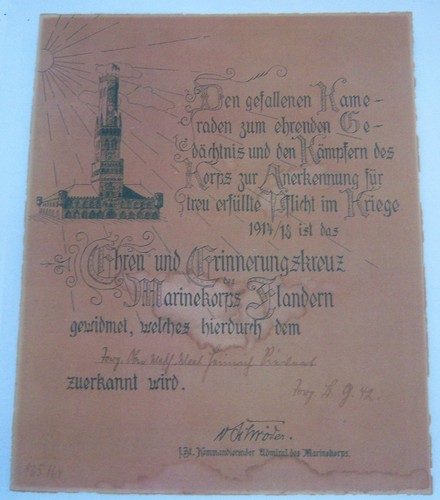 Den gefallenen Kame-
raden zum ehrenden Ge-
dächtnis und den Kämpfern des
Korps zur Anerkennung für
treu erfüllte Pflicht im Kriege
1914/18 ist das
Ehren und Erinnerungskreuz
des
Marinekorps Flandern
gewidmet, welches hierdurch dem
Heinrich
zuerkannt wird.
v. Schröder.
z. Zt. Kommandierender Admiral des Marinekorps.